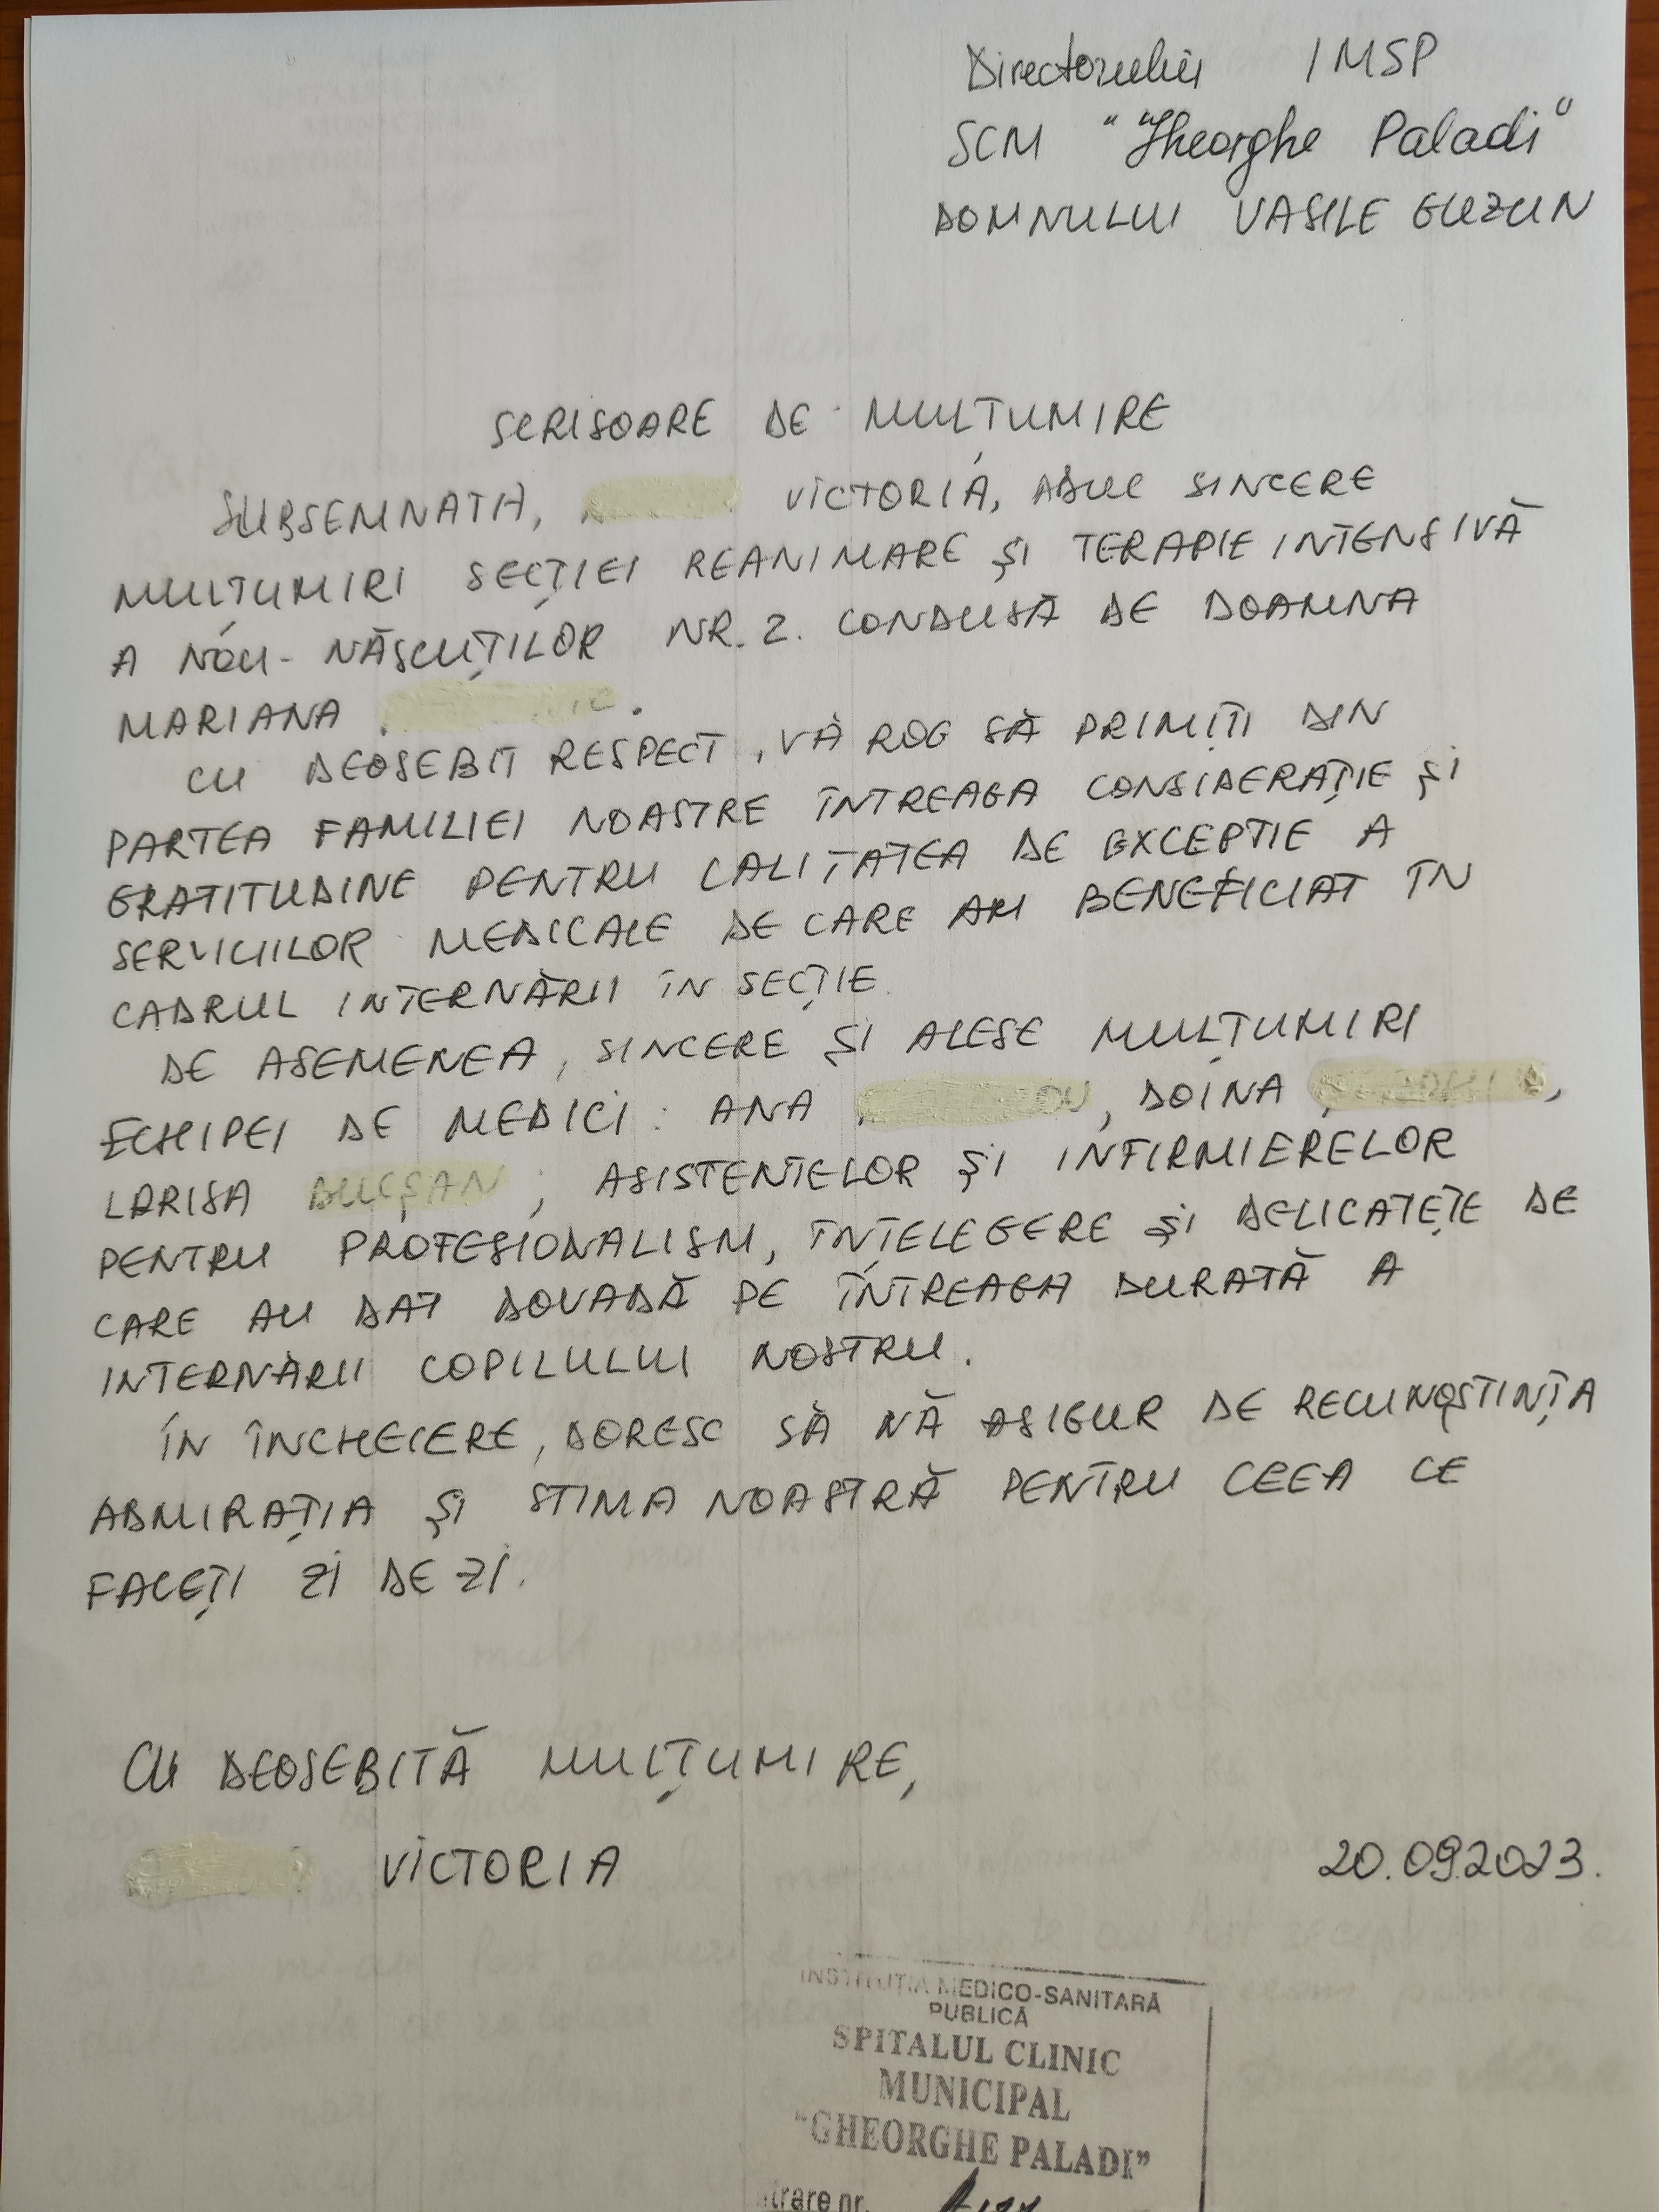 Directorului IMSP
SCM "Gheorghe Paladi"
DOMNULUI VASILE GUZUN
SCRISOARE DE MULȚUMIRE
SUBSEMNATA, VICTORIA, ADUC SINCERE
MULȚUMIRI SECȚIEI REANIMARE ȘI TERAPIE INTENSIVĂ
A NOU-NĂSCUȚILOR NR. 2. CONDUSĂ DE DOAMNA
MARIANA .
CU DEOSEBIT RESPECT, VĂ ROG SĂ PRIMIȚI DIN
PARTEA FAMILIEI NOASTRE ÎNTREAGA CONSIDERAȚIE ȘI
GRATITUDINE PENTRU CALITATEA DE EXCEPTIE A
SERVICIILOR MEDICALE DE CARE AM BENEFICIAT ÎN
CADRUL INTERNĂRII ÎN SECȚIE.
DE ASEMENEA, SINCERE ȘI ALESE MULȚUMIRI
ECHIPEI DE MEDICI: ANA , DOINA ,
LARISA ; ASISTENTELOR ȘI INFIRMIERELOR
PENTRU PROFESIONALISM, ÎNȚELEGERE ȘI DELICATEȚE DE
CARE AU DAT DOVADĂ PE ÎNTREAGA DURATĂ A
INTERNĂRII COPILULUI NOSTRU.
ÎN ÎNCHEIERE, DORESC SĂ NĂ ASIGUR DE RECUNOȘTINȚA
ADMIRAȚIA ȘI STIMA NOASTRĂ PENTRU CEEA CE
FACEȚI ZI DE ZI.
CU DEOSEBITĂ MULȚUMIRE,
VICTORIA 20.09.2023.
INSTITUȚIA MEDICO-SANITARĂ
PUBLICĂ
SPITALUL CLINIC
MUNICIPAL
"GHEORGHE PALADI"
nr.